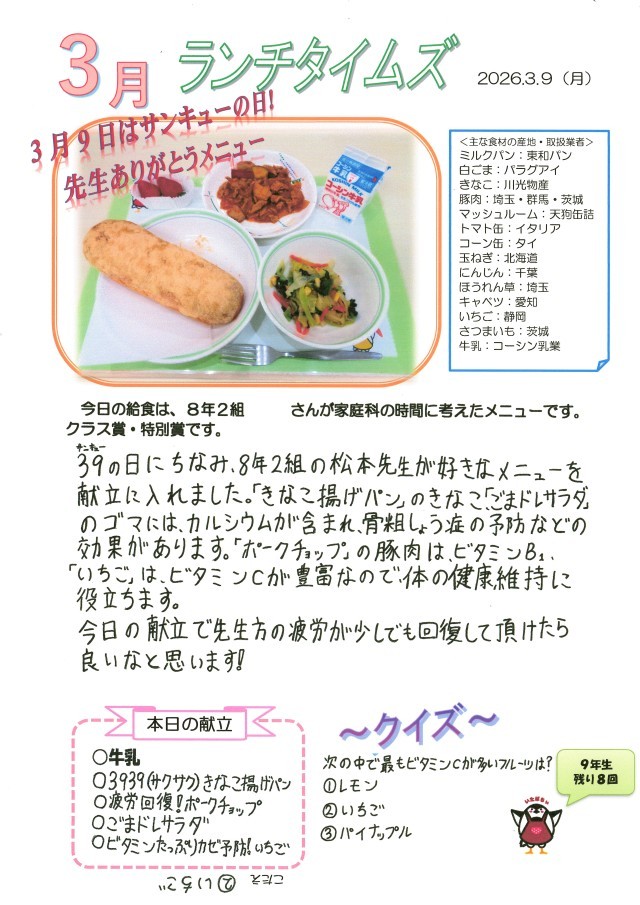 3月 ランチタイムズ 2026.3.9（月）
3月9日はサンキューの日!
先生ありがとうメニュー
＜主な食材の産地・取扱業者＞
ミルクパン：東和パン
白ごま：パラグアイ
きなこ：川光物産
豚肉：埼玉・群馬・茨城
マッシュルーム：天狗缶詰
トマト缶：イタリア
コーン缶：タイ
玉ねぎ：北海道
にんじん：千葉
ほうれん草：埼玉
キャベツ：愛知
いちご：静岡
さつまいも：茨城
牛乳：コーシン乳業
コーシン牛乳
今日の給食は、８年２組　　　さんが家庭科の時間に考えたメニューです。
クラス賞・特別賞です。
サンキュー
39の日にちなみ、8年2組の松本先生が好きなメニューを
献立に入れました。「きなこ揚げパン」のきなこ、「ごまドレサラダ」
のゴマには、カルシウムが含まれ、骨粗しょう症の予防などの
効果があります。「ポークチョップ」の豚肉は、ビタミンB₁、
「いちご」は、ビタミンCが豊富なので、体の健康維持に
役立ちます。
今日の献立で先生方の疲労が少しでも回復して頂けたら
良いなと思います!
本日の献立
○牛乳
○3939(サクサク)きなこ揚げパン
○疲労回復!ポークチョップ
○ごまドレサラダ
○ビタミンたっぷりカゼ予防!いちご
～クイズ～
次の中で最もビタミンCが多いフルーツは?
①レモン
②いちご
③パイナップル
9年生
残り8回
こたえ ②いちご